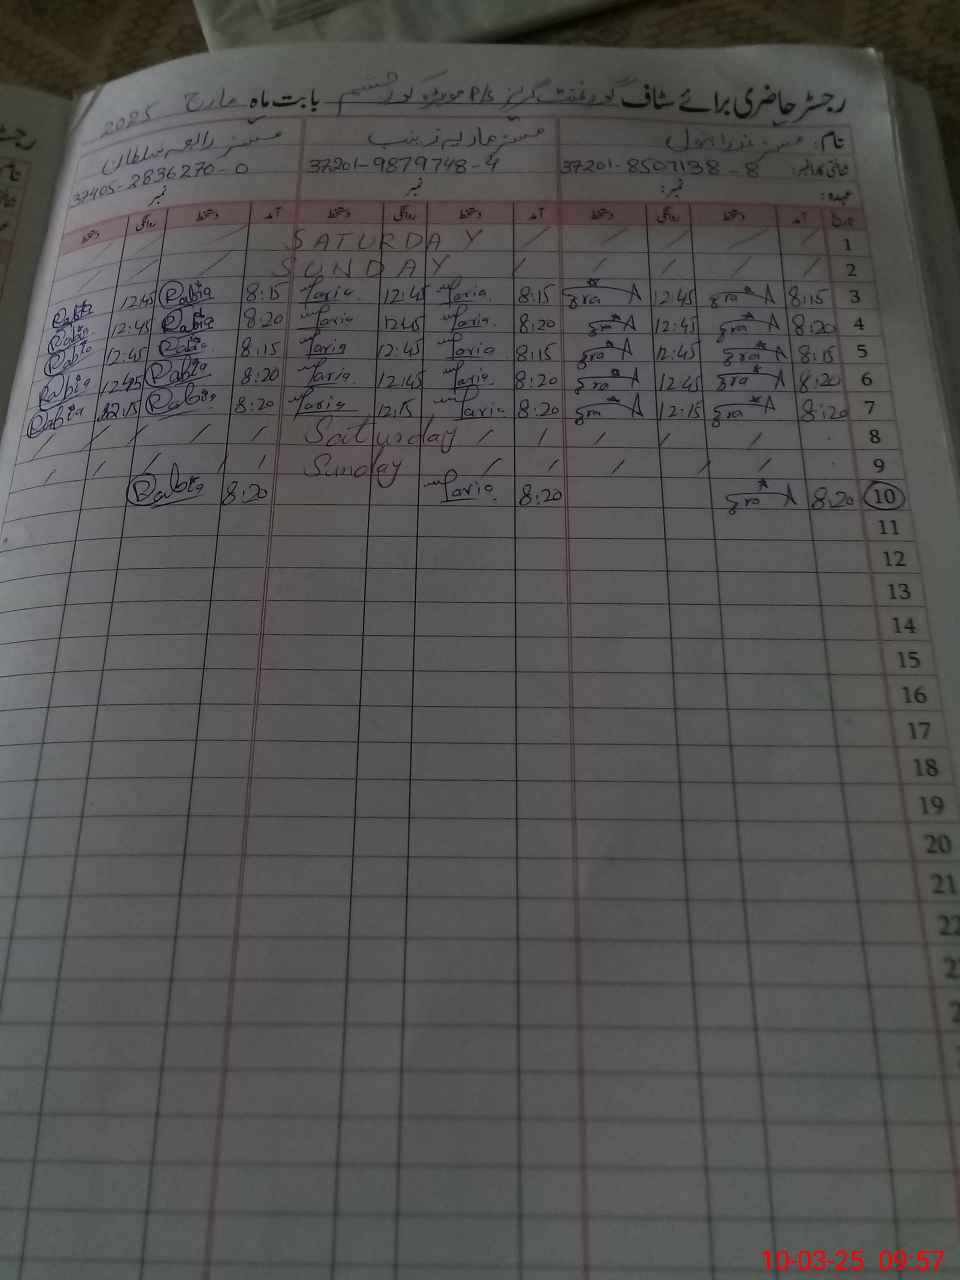 رجسٹر حاضری برائے سٹاف گورنمنٹ گرلز P/S بابت ماہ مارچ 2025
نام: مسز عذرا بتول مسز ماریہ زینب مسز رابعہ سلطان
شناختی کارڈ نمبر: 37201-8507138-8 37201-9879748-4 37405-2836270-0
عہدہ: نمبر: نمبر نمبر
تاریخ آمد دستخط روانگی دستخط آمد دستخط روانگی دستخط آمد دستخط روانگی دستخط
1 / / / / SATURDAY / / / /
2 / / / / SUNDAY / / / /
3 8:15 zra A 12:45 zra A 8:15 Maria 12:45 Maria 8:15 Rabia 12:45 Rabia
4 8:20 zra A 12:45 zra A 8:20 Maria 12:45 Maria 8:20 Rabia 12:45 Rabia
5 8:15 zra A 12:45 zra A 8:15 Maria 12:45 Maria 8:15 Rabia 12:45 Rabia
6 8:20 zra A 12:45 zra A 8:20 Maria 12:45 Maria 8:20 Rabia 12:45 Rabia
7 8:20 zra A 12:15 zra A 8:20 Maria 12:15 Maria 8:20 Rabia 12:15 Rabia
8 / / / Saturday / / / / /
9 / / / Sunday / / / / /
10 8:20 zra A 8:20 Maria 8:20 Rabia
11
12
13
14
15
16
17
18
19
20
21
22
10-03-25 09:57